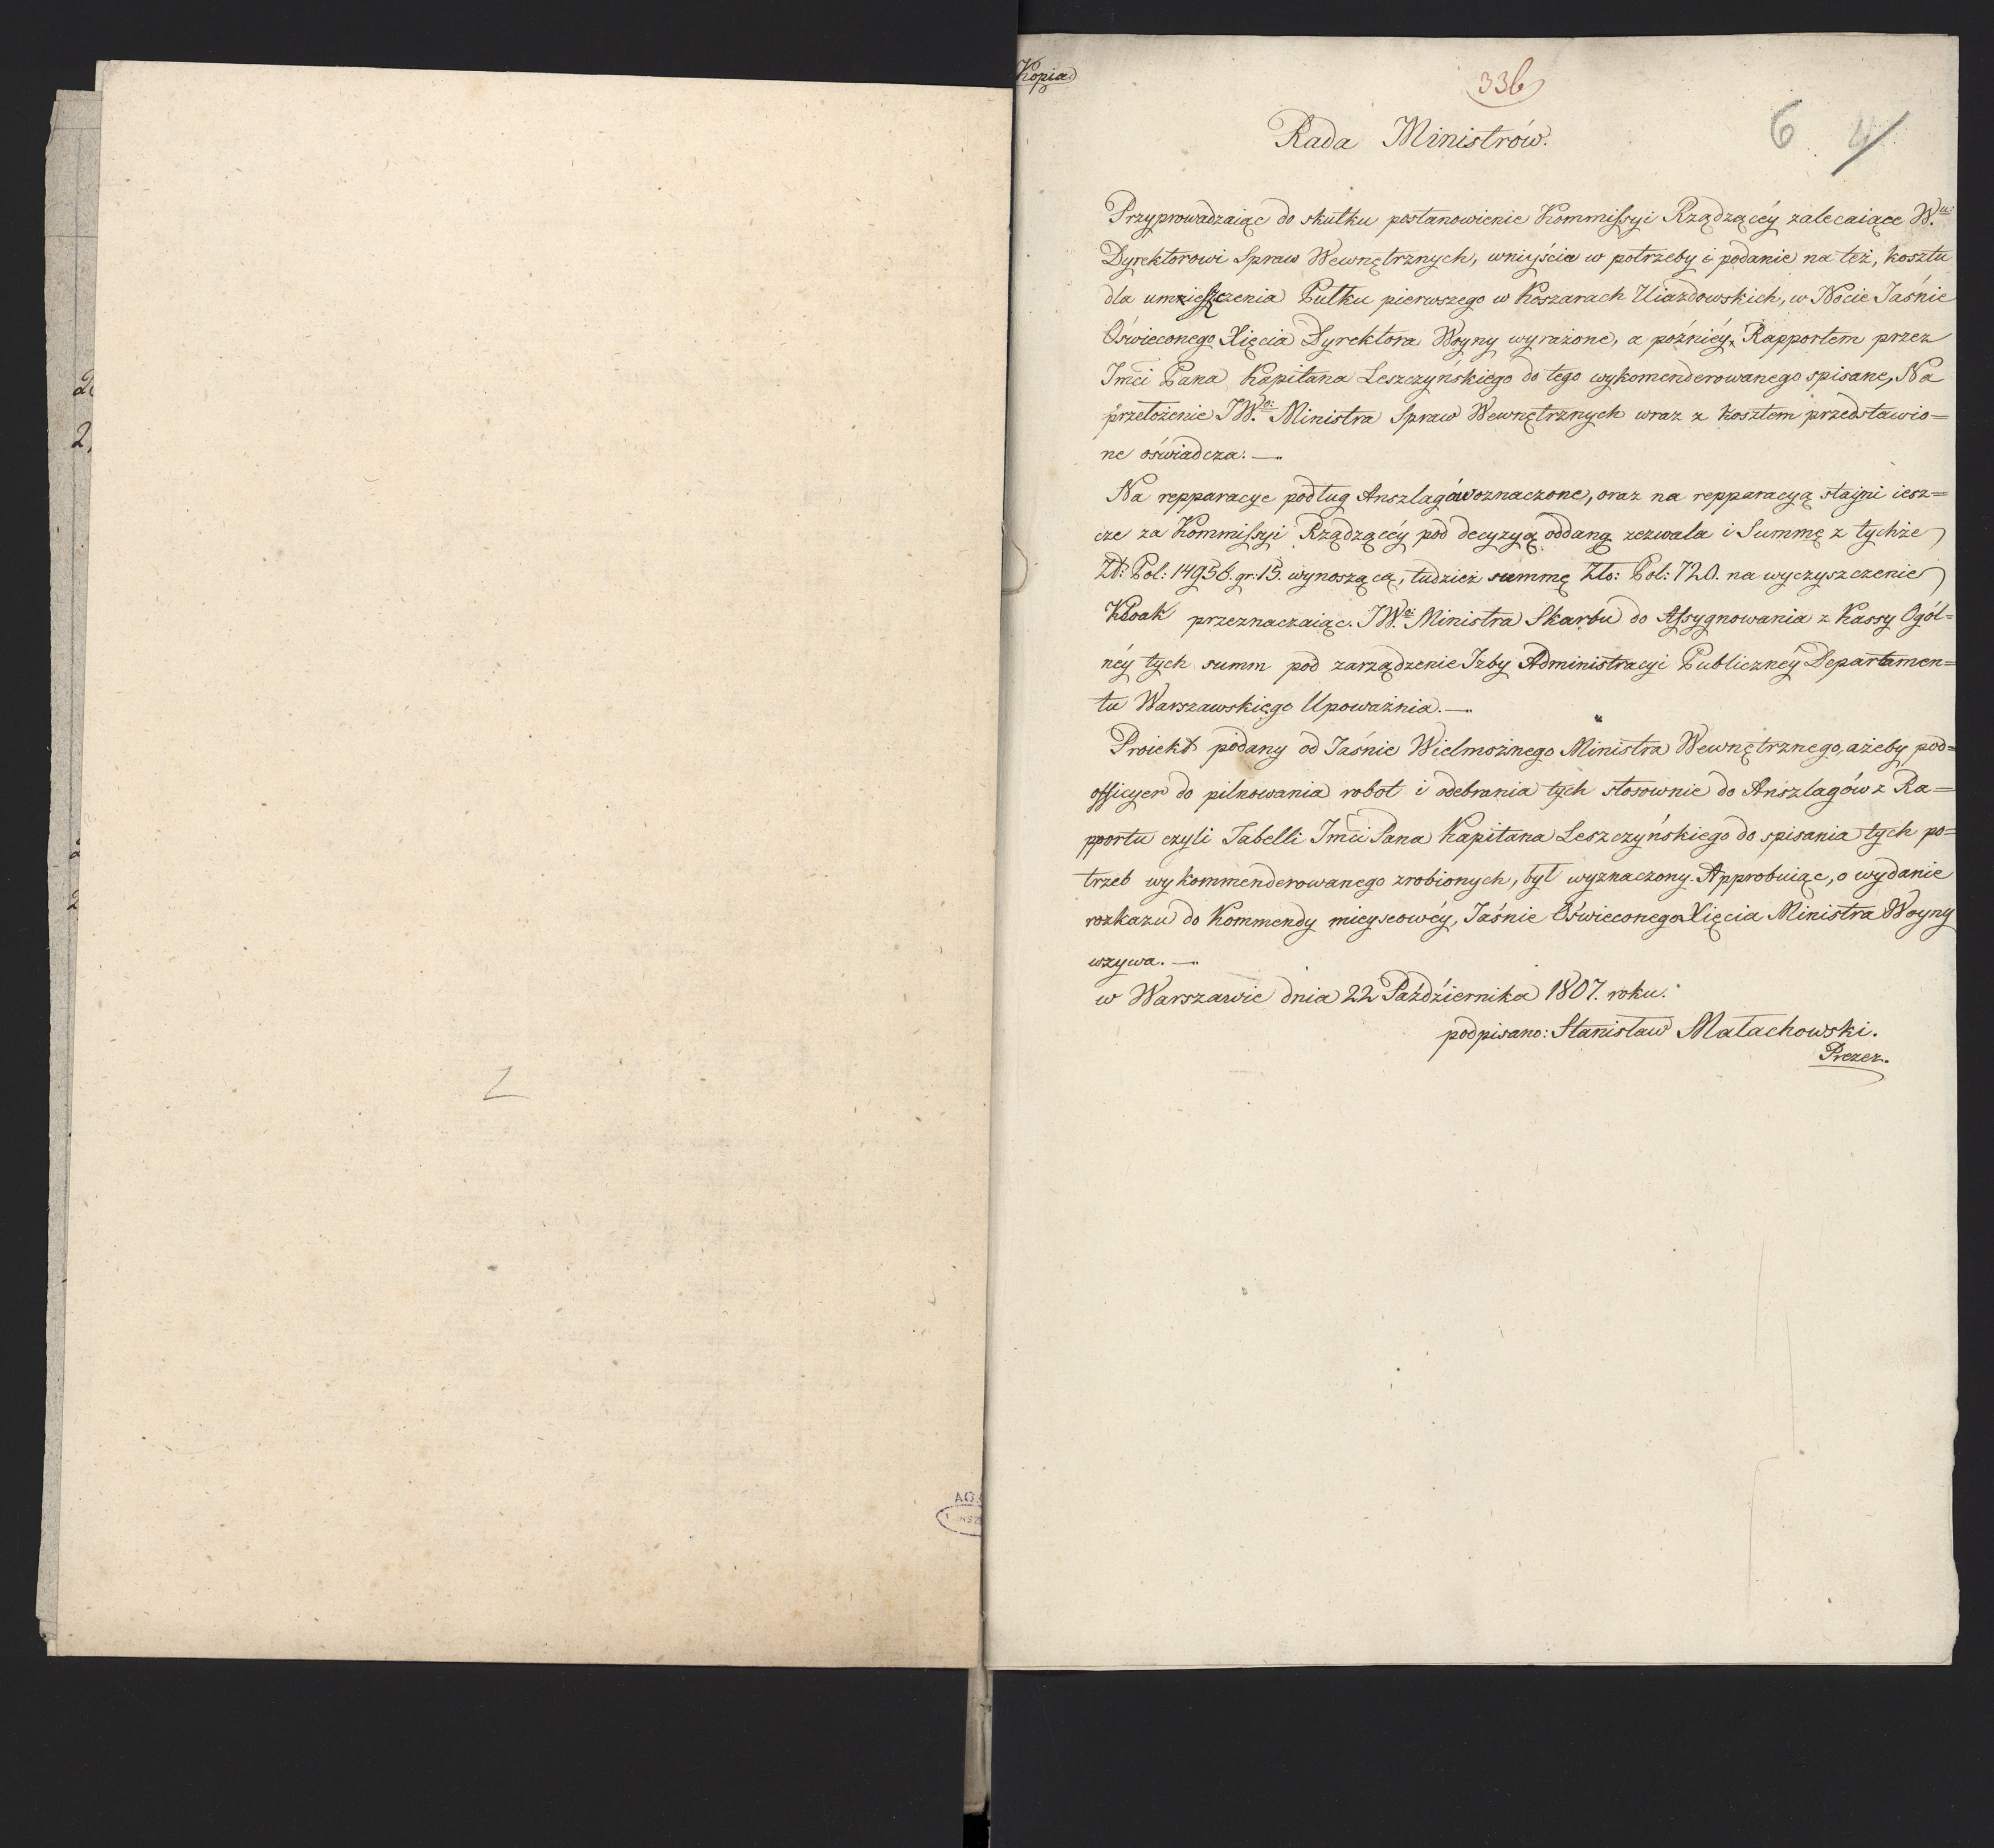 Kopia
336
6 4
Rada Ministrów.
Przyprowadzaiąc do skutku postanowienie Kommissyi Rządzącéy zalecaiące W.mu
Dyrektorowi Spraw Wewnętrznych, wniyścia w potrzeby i podanie na też, kosztu
dla umieszczenia Pułku pierwszego w Koszarach Uiazdowskich, w Nocie Jaśnie
Oświeconego Xięcia Dyrektora Woyny wyrażone, a poźniéy Rapportem przez
Jmći Pana Kapitana Leszczyńskiego do tego wykomenderowanego spisane, Na
przełożenie JW.go Ministra Spraw Wewnętrznych wraz z kosztem przedstawio=
ne oświadcza: —
Na repparacye podług Anszlagów oznaczone, oraz na repparacyą stayni iesz=
cze za Kommissyi Rządzącéy pod decyzyą oddaną zezwala i Summę z tychże
Zł: Pol: 14956. gr: 15. wynoszącą, tudzież summę Zło: Pol: 720. na wyczyszczenie
Kloak przeznaczaiąc. JW.go Ministra Skarbu do Assygnowania z Kassy Ogól=
néy tych summ pod zarządzenie Izby Administracyi Publicznéy Departamen=
tu Warszawskiego Upoważnia. —
Proiekt podany od Jaśnie Wielmożnego Ministra Wewnętrznego, ażeby pod=
officyer do pilnowania robot i odebrania tych stosownie do Anszlagów z Ra=
pportu czyli Tabelli Jmći Pana Kapitana Leszczyńskiego do spisania tych po=
trzeb wykommenderowanego zrobionych, był wyznaczony. Approbuiąc, o wydanie
rozkazu do Kommendy mieyscowéy, Jaśnie Oświeconego Xięcia Ministra Woyny
wzywa. —
w Warszawie dnia 22 Października 1807. roku.
podpisano: Stanisław Małachowski.
Prezez.
2